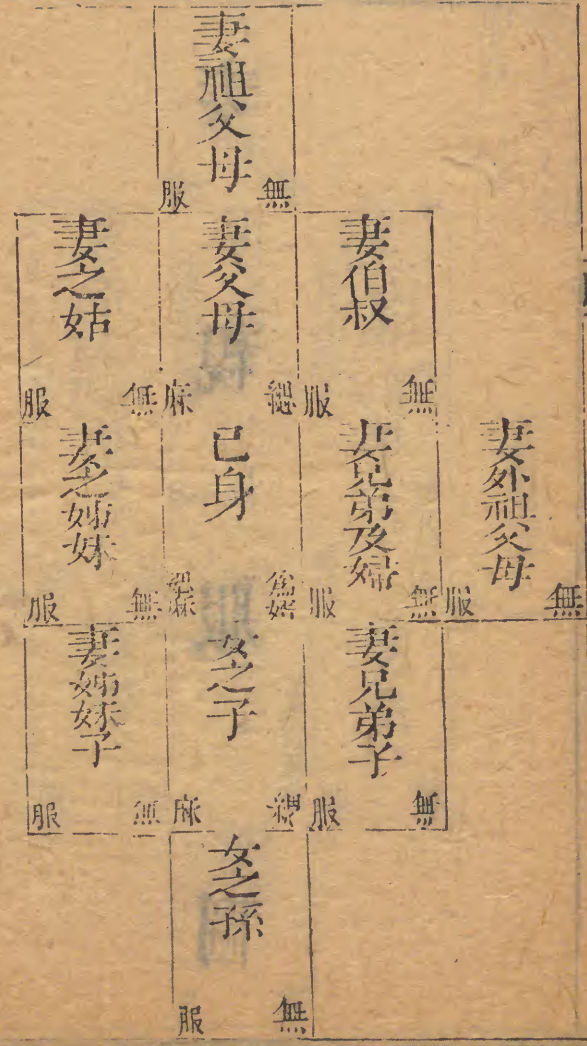 妻祖父母
無服
妻伯叔
無服
妻父母
緦麻
妻之姑
無服
妻外祖父母
無服
妻兄弟及婦
無服
己身
為婿緦麻
妻之姊妹
無服
妻兄弟子
無服
女之子
緦麻
妻姊妹子
無服
女之孫
無服